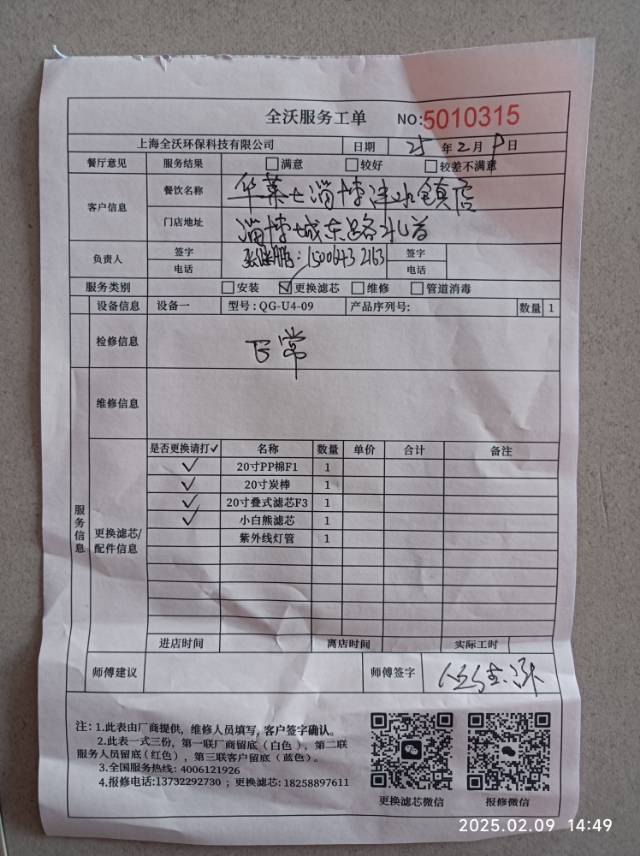 全沃服务工单 NO:5010315
上海全沃环保科技有限公司 日期 25年2月 日
餐厅意见 服务结果 □满意 □较好 □较差不满意
客户信息 餐饮名称 华莱士淄博沣水镇店
门店地址 淄博城东路北首
负责人 签字 电话 签字 电话
服务类别 □安装 ☑更换滤芯 □维修 □管道消毒
设备信息 设备一 型号:QG-U4-09 产品序列号: 数量 1
检修信息 正常
维修信息
服务信息
更换滤芯/配件信息
是否更换请打✓ 名称 数量 单价 合计 备注
✓ 20寸PP棉F1 1
✓ 20寸炭棒 1
✓ 20寸叠式滤芯F3 1
✓ 小白熊滤芯 1
紫外线灯管 1
进店时间 离店时间 实际工时
师傅建议 师傅签字
注:1.此表由厂商提供,维修人员填写,客户签字确认。
2.此表一式三份,第一联厂商留底(白色)、第二联
服务人员留底(红色)、第三联客户留底(蓝色)。
3.全国服务热线:4006121926
4.报修电话:13732292730 ; 更换滤芯:18258897611
更换滤芯微信 报修微信
2025.02.09 14:49